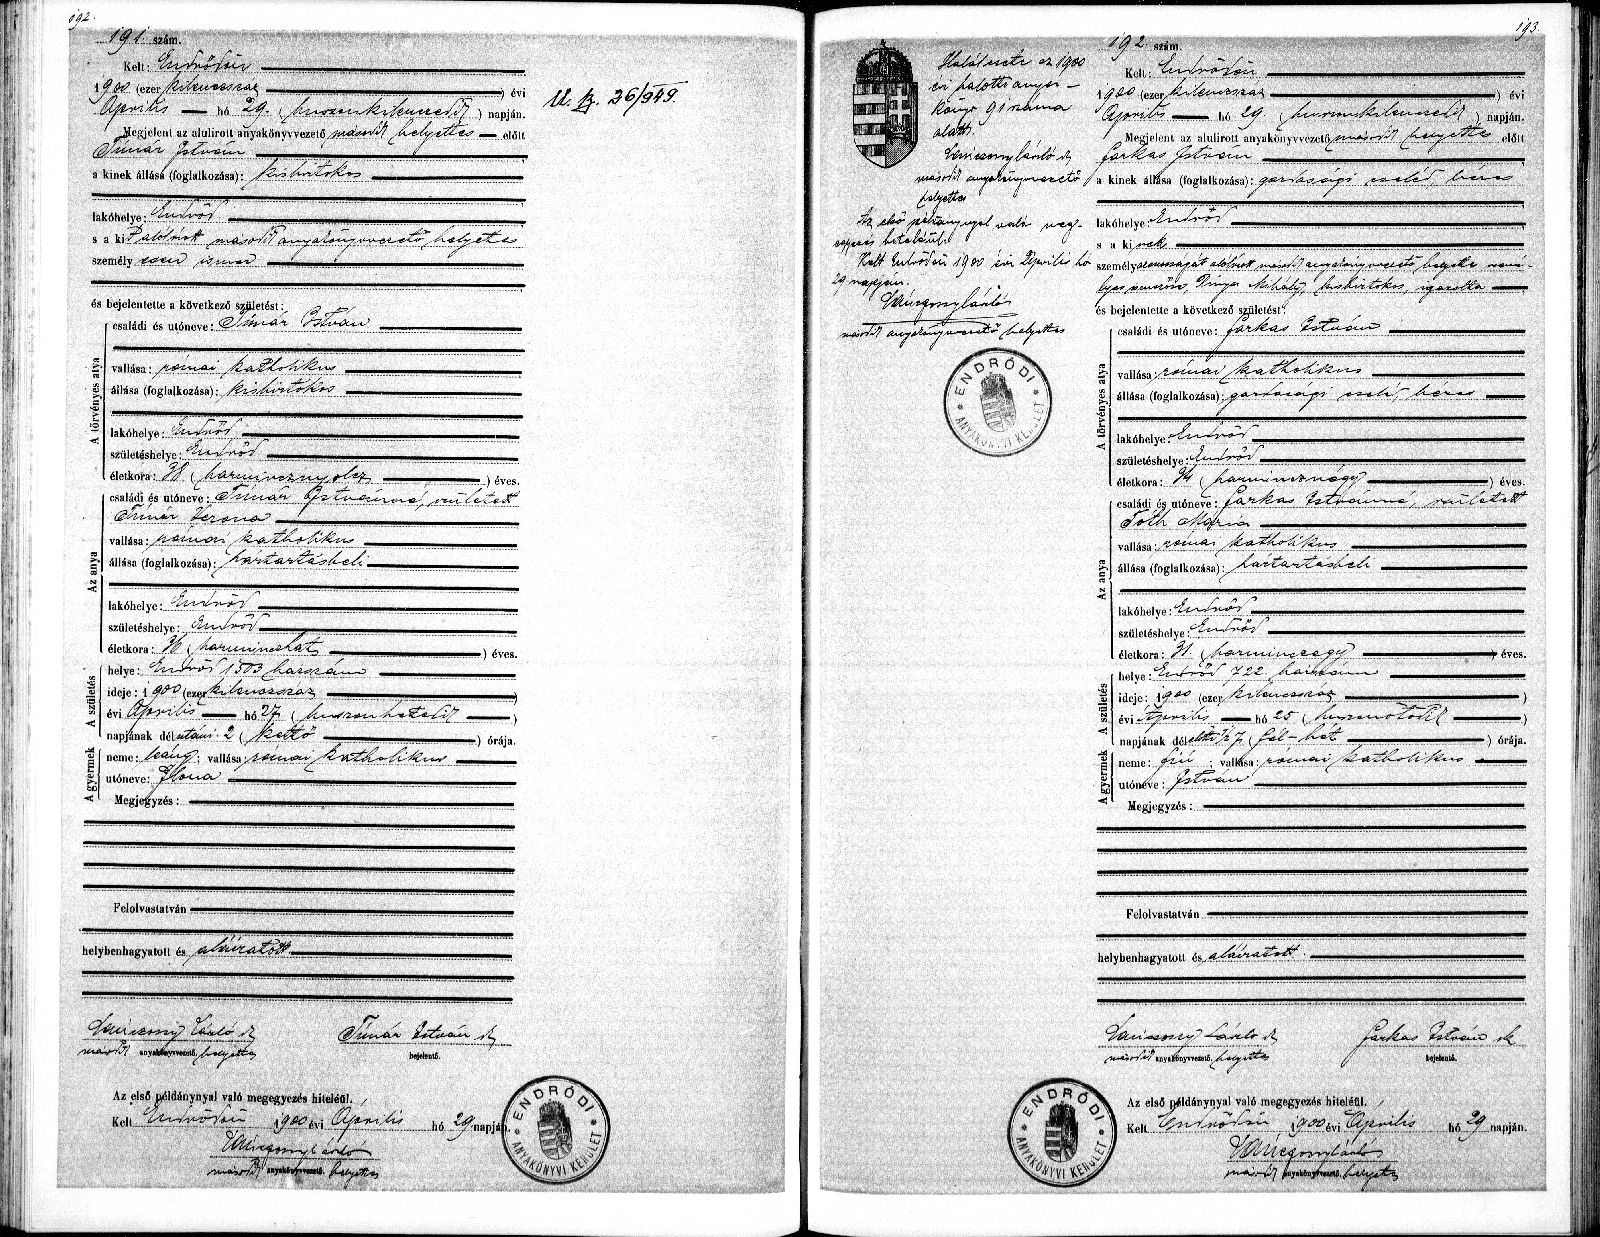 192.
191. szám.
Kelt: Endrődön
1900 (ezer kilenczszáz) évi
Április hó 29. (huszonkilenczedik) napján.
Megjelent az alulirott anyakönyvvezető másodk helyettes előtt
Timár István
a kinek állása (foglalkozása): kisbirtokos
lakóhelye: Endrőd
s a kit alólírott másodk anyakönyvvezető helyettes
személyesen ismer
és bejelentette a következő születést:
A törvényes atya
családi és utóneve: Timár István
vallása: római katholikus
állása (foglalkozása): kisbirtokos
lakóhelye: Endrőd
születéshelye: Endrőd
életkora: 38. (harmincznyolcz) éves.
Az anya
családi és utóneve: Timár Istvánné, született
Timár Verona
vallása: római katholikus
állása (foglalkozása): háztartásbeli
lakóhelye: Endrőd
születéshelye: Endrőd
életkora: 36. (harminczhat) éves.
A születés
helye: Endrőd 1503 házszám
ideje: 1900 (ezer kilenczszáz)
évi Április hó 27. (huszonhetedik)
napjának délutáni 2 (kettő) órája.
A gyermek
neme: leány; vallása: római katholikus
utóneve: Ilona
Megjegyzés:
Felolvastatván
helybenhagyatott és aláíratott.
László
Timár István
másodk anyakönyvvezető. helyettes
bejelentő.
Az első példánynyal való megegyezés hiteléül.
Kelt Endrődön 1900 évi Április hó 29 napján.
másodk anyakönyvvezető. helyettes
ENDRŐDI
ANYAKÖNYVI KERÜLET
36/949.
193.
Halálesete az 1900
évi halotti anya-
könyv 91 száma
alatt.
László
másodk anyakönyvvezető
helyettes
Az első példánynyal való meg-
egyezés hiteléül.
Kelt Endrődön 1900 évi Április hó
29 napján.
másodk anyakönyvvezető helyettes
ENDRŐDI
ANYAKÖNYVI KERÜLET
192. szám.
Kelt: Endrődön
1900 (ezer kilenczszáz) évi
Április hó 29. (huszonkilenczedik) napján.
Megjelent az alulirott anyakönyvvezető másodk helyettes előtt
Farkas István
a kinek állása (foglalkozása): gazdasági cseléd, béres
lakóhelye: Endrőd
s a kinek
személyazonosságát alólírott másodk anyakönyvvezető helyettes
Mihály, kisbirtokos, igazolta
és bejelentette a következő születést:
A törvényes atya
családi és utóneve: Farkas István
vallása: római katholikus
állása (foglalkozása): gazdasági cseléd, béres
lakóhelye: Endrőd
születéshelye: Endrőd
életkora: 34 (harmincznégy) éves.
Az anya
családi és utóneve: Farkas Istvánné, született
Tóth Mária
vallása: római katholikus
állása (foglalkozása): háztartásbeli
lakóhelye: Endrőd
születéshelye: Endrőd
életkora: 31. (harminczegy) éves.
A születés
helye: Endrőd 722 házszám
ideje: 1900 (ezer kilenczszáz)
évi Április hó 25 (huszonötödik)
napjának délelőtti 1/2 7. (fél-hét) órája.
A gyermek
neme: fiú; vallása: római katholikus
utóneve: István
Megjegyzés:
Felolvastatván
helybenhagyatott és aláíratott.
László
Farkas István
másodk anyakönyvvezető. helyettes
bejelentő.
Az első példánynyal való megegyezés hiteléül.
Kelt Endrődön 1900 évi Április hó 29 napján.
másodk anyakönyvvezető. helyettes
ENDRŐDI
ANYAKÖNYVI KERÜLET